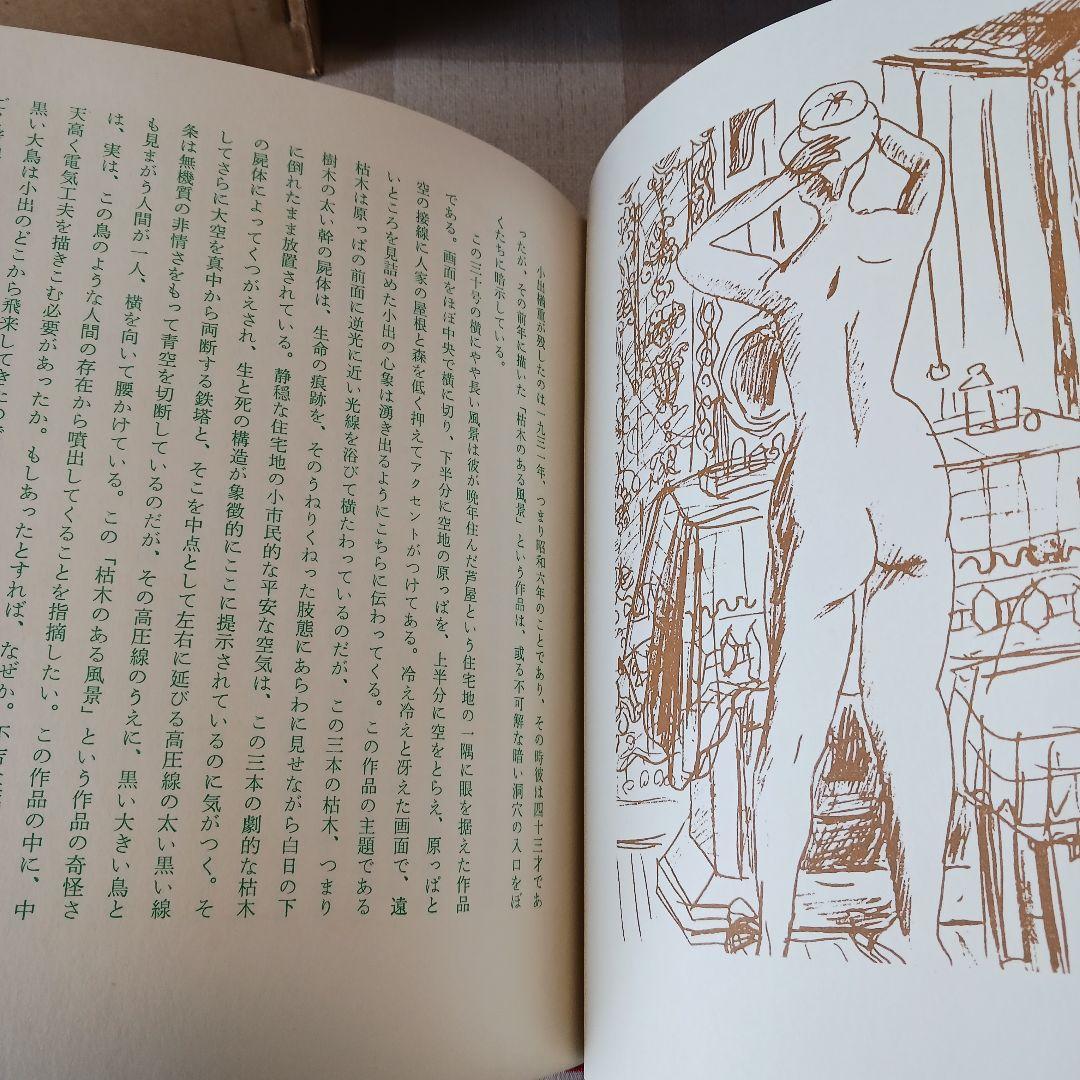 小出楢重が残したのは一九三一年、つまり昭和六年のことであり、その時彼は四十三才であ
ったが、その前年に描いた「枯木のある風景」という作品は、或る不可解な暗い洞穴の入口をぼ
くたちに暗示している。
この三十号の横にやや長い風景は彼が晩年住んだ芦屋という住宅地の一隅に眼を据えた作品
である。画面をほぼ中央で横に切り、下半分に空地の原っぱを、上半分に空をとらえ、原っぱと
空の接線に人家の屋根と森を低く抑えてアクセントがつけてある。冷え冷えと冴えた画面で、遠
いところを見詰めた小出の心象は湧き出るようにこちらに伝わってくる。この作品の主題である
枯木は原っぱの前面に逆光に近い光線を浴びて横たわっているのだが、この三本の枯木、つまり
樹木の太い幹の屍体は、生命の痕跡を、そのうねりくねった肢態にあらわに見せながら白日の下
に倒れたまま放置されている。静穏な住宅地の小市民的な平安な空気は、この三本の劇的な枯木
の屍体によってくつがえされ、生と死の構造が象徴的にここに提示されているのに気がつく。そ
してさらに大空を真中から両断する鉄塔と、そこを中点として左右に延びる高圧線の太い黒い線
条は無機質の非情さをもって青空を切断しているのだが、その高圧線のうえに、黒い大きい鳥と
も見まがう人間が一人、横を向いて腰かけている。この「枯木のある風景」という作品の奇怪さ
は、実は、この鳥のような人間の存在から噴出してくることを指摘したい。この作品の中に、中
天高く電気工夫を描きこむ必要があったか。もしあったとすれば、なぜか。
黒い大鳥は小出のどこから飛来してきた